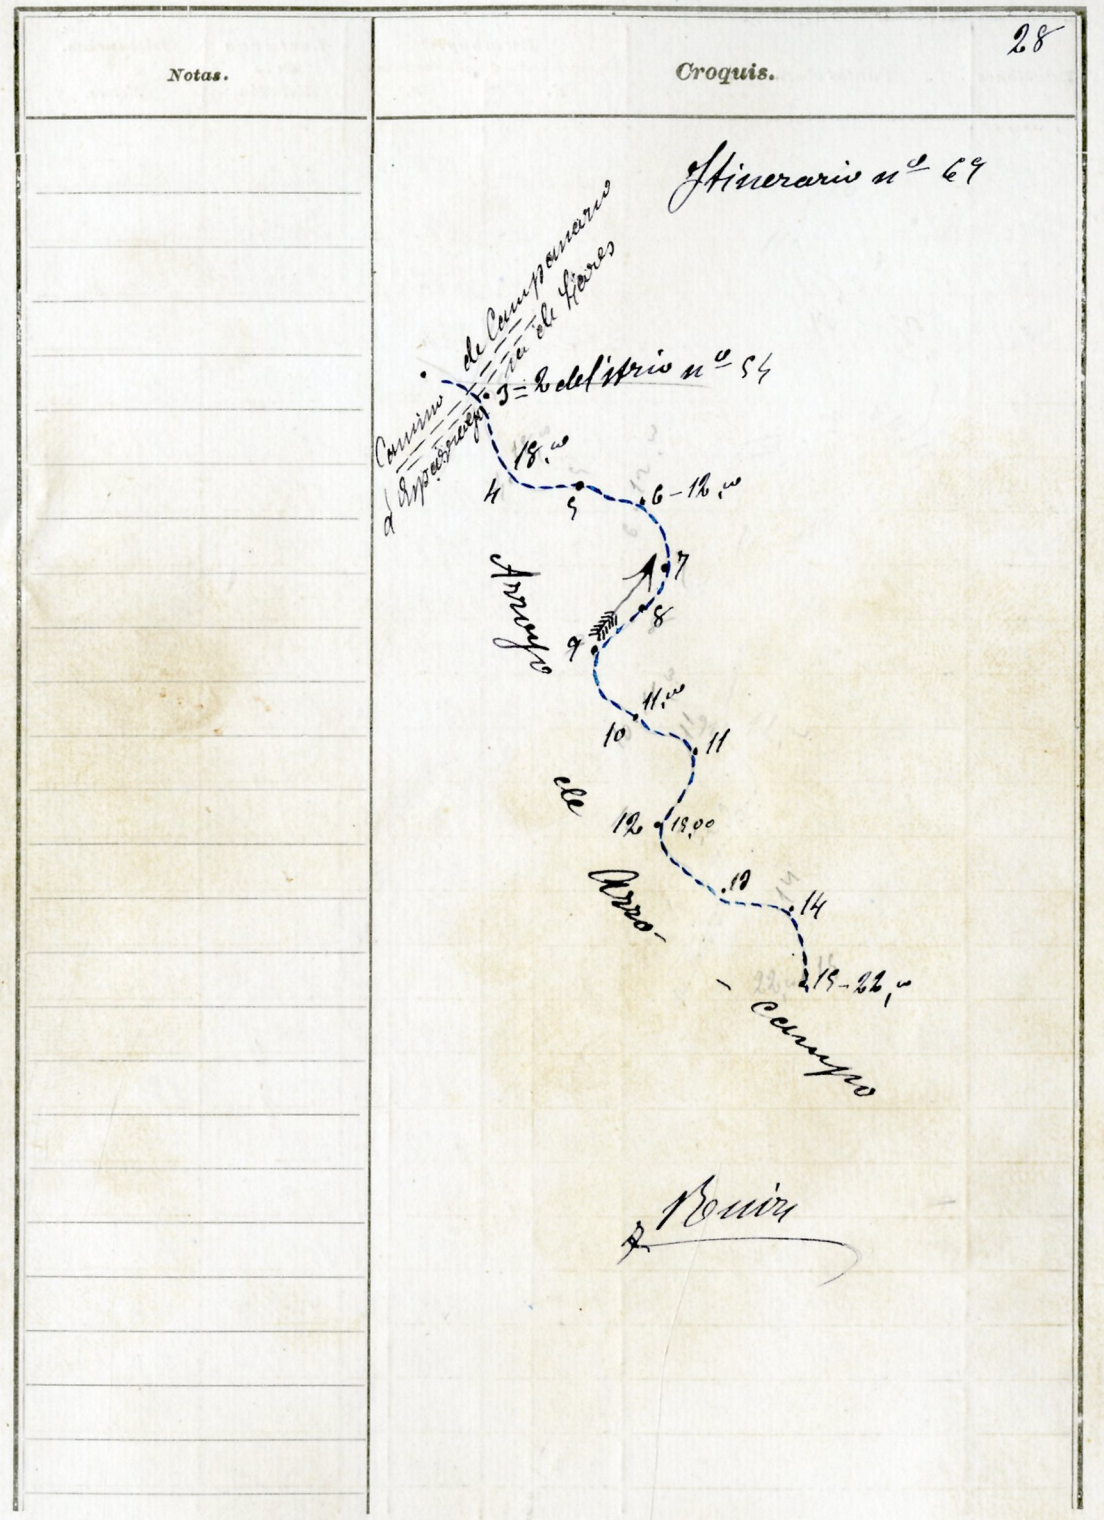 28
Notas.
Croquis.
Itinerario nº 69
Camino de Campanario
á Esparragosa de Lares
3=2 del Itrio nº 54
18,00
4
5
6-12,00
7
8
9
Arroyo
11,00
10
11
de
12 15,00
Arro-
13
14
15-22,00
-campo